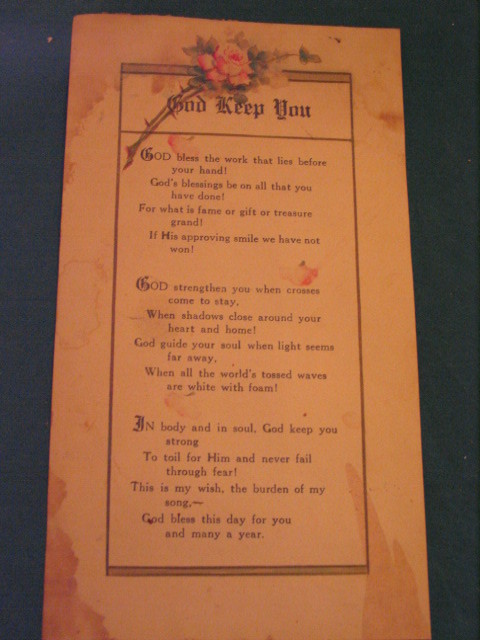 God Keep You
GOD bless the work that lies before
your hand!
God's blessings be on all that you
have done!
For what is fame or gift or treasure
grand!
If His approving smile we have not
won!
GOD strengthen you when crosses
come to stay,
When shadows close around your
heart and home!
God guide your soul when light seems
far away,
When all the world's tossed waves
are white with foam!
IN body and in soul, God keep you
strong
To toil for Him and never fail
through fear!
This is my wish, the burden of my
song,~
God bless this day for you
and many a year.